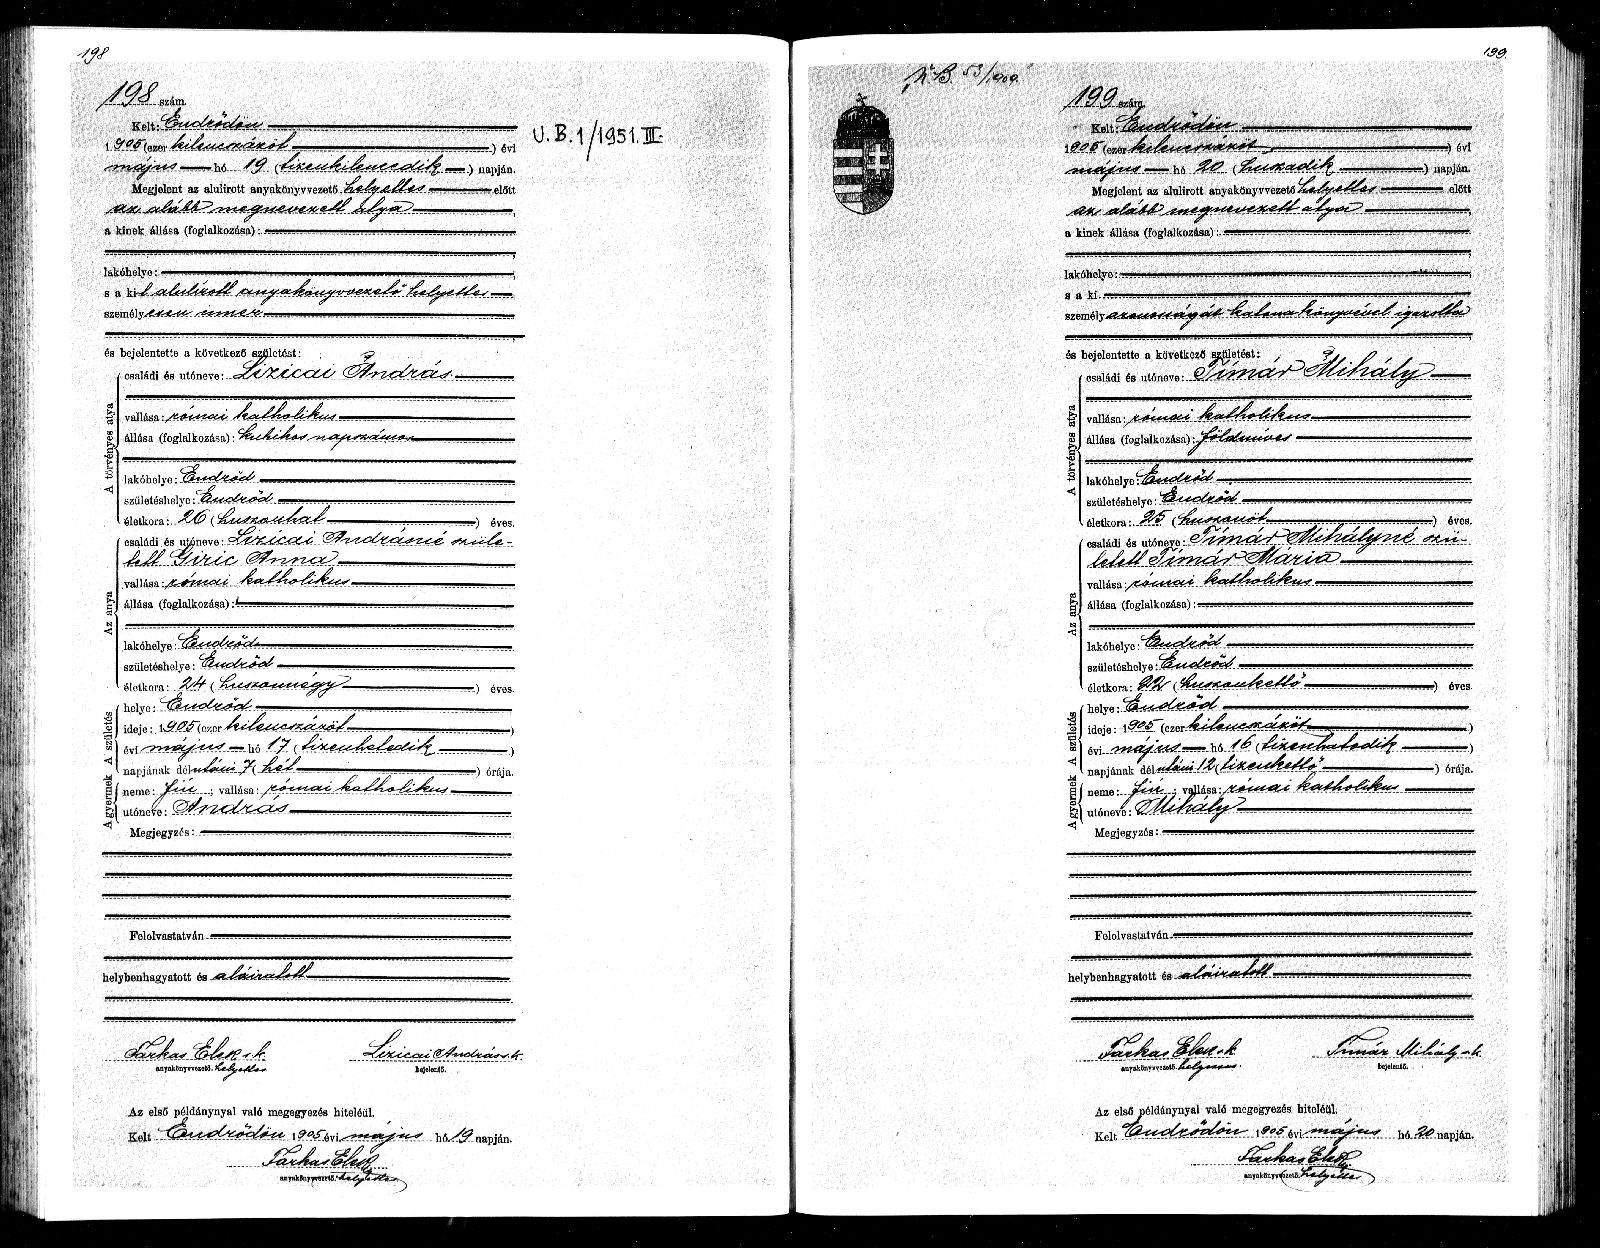 198
198 szám.
Kelt: Endrődön
1905 (ezer kilencszázöt ) évi
május hó 19 (tizenkilencedik ) napján.
Megjelent az alulirott anyakönyvvezető helyettes előtt
az alább megnevezett atya
a kinek állása (foglalkozása):
lakóhelye:
s a kit alulirott anyakönyvvezető helyettes
személyesen ismer
és bejelentette a következő születést:
A törvényes atya
családi és utóneve: Lizicai András
vallása: római katholikus
állása (foglalkozása): kubikos napszámos
lakóhelye: Endrőd
születéshelye: Endrőd
életkora: 26 (huszonhat ) éves.
Az anya
családi és utóneve: Lizicai Andrásné szüle-
tett Giric Anna
vallása: római katholikus
állása (foglalkozása):
lakóhelye: Endrőd
születéshelye: Endrőd
életkora: 24 (huszonnégy ) éves.
A gyermek A születés
helye: Endrőd
ideje: 1905 (ezer kilencszázöt )
évi május hó 17 (tizenhetedik )
napjának délutáni 7 (hét ) órája.
neme: fiú ; vallása: római katholikus
utóneve: András
Megjegyzés:
Felolvastatván
helybenhagyatott és aláiratott
Farkas Elek sk.
Lizicai András sk.
anyakönyvvezető. helyettes
bejelentő.
Az első példánynyal való megegyezés hiteléül.
Kelt Endrődön 1905 évi május hó 19 napján.
Farkas Elek
anyakönyvvezető. helyettes
U.B.1/1951.III.
199
53/909.
199 szám.
Kelt: Endrődön
1905 (ezer kilencszázöt ) évi
május hó 20 (huszadik ) napján.
Megjelent az alulirott anyakönyvvezető helyettes előtt
az alább megnevezett atya
a kinek állása (foglalkozása):
lakóhelye:
s a ki
személyazonosságát katona könyvével igazolta
és bejelentette a következő születést:
A törvényes atya
családi és utóneve: Tímár Mihály
vallása: római katholikus
állása (foglalkozása): földmíves
lakóhelye: Endrőd
születéshelye: Endrőd
életkora: 25 (huszonöt ) éves.
Az anya
családi és utóneve: Tímár Mihályné szü-
letett Tímár Maria
vallása: római katholikus
állása (foglalkozása):
lakóhelye: Endrőd
születéshelye: Endrőd
életkora: 22 (huszonkettő ) éves.
A gyermek A születés
helye: Endrőd
ideje: 1905 (ezer kilencszázöt )
évi május hó 16 (tizenhatodik )
napjának délutáni 12 (tizenkettő ) órája.
neme: fiú ; vallása: római katholikus
utóneve: Mihály
Megjegyzés:
Felolvastatván
helybenhagyatott és aláiratott
Farkas Elek sk
Tímár Mihály sk.
anyakönyvvezető. helyettes.
bejelentő.
Az első példánynyal való megegyezés hiteléül.
Kelt Endrődön 1905 évi május hó 20 napján.
Farkas Elek
anyakönyvvezető. helyettes